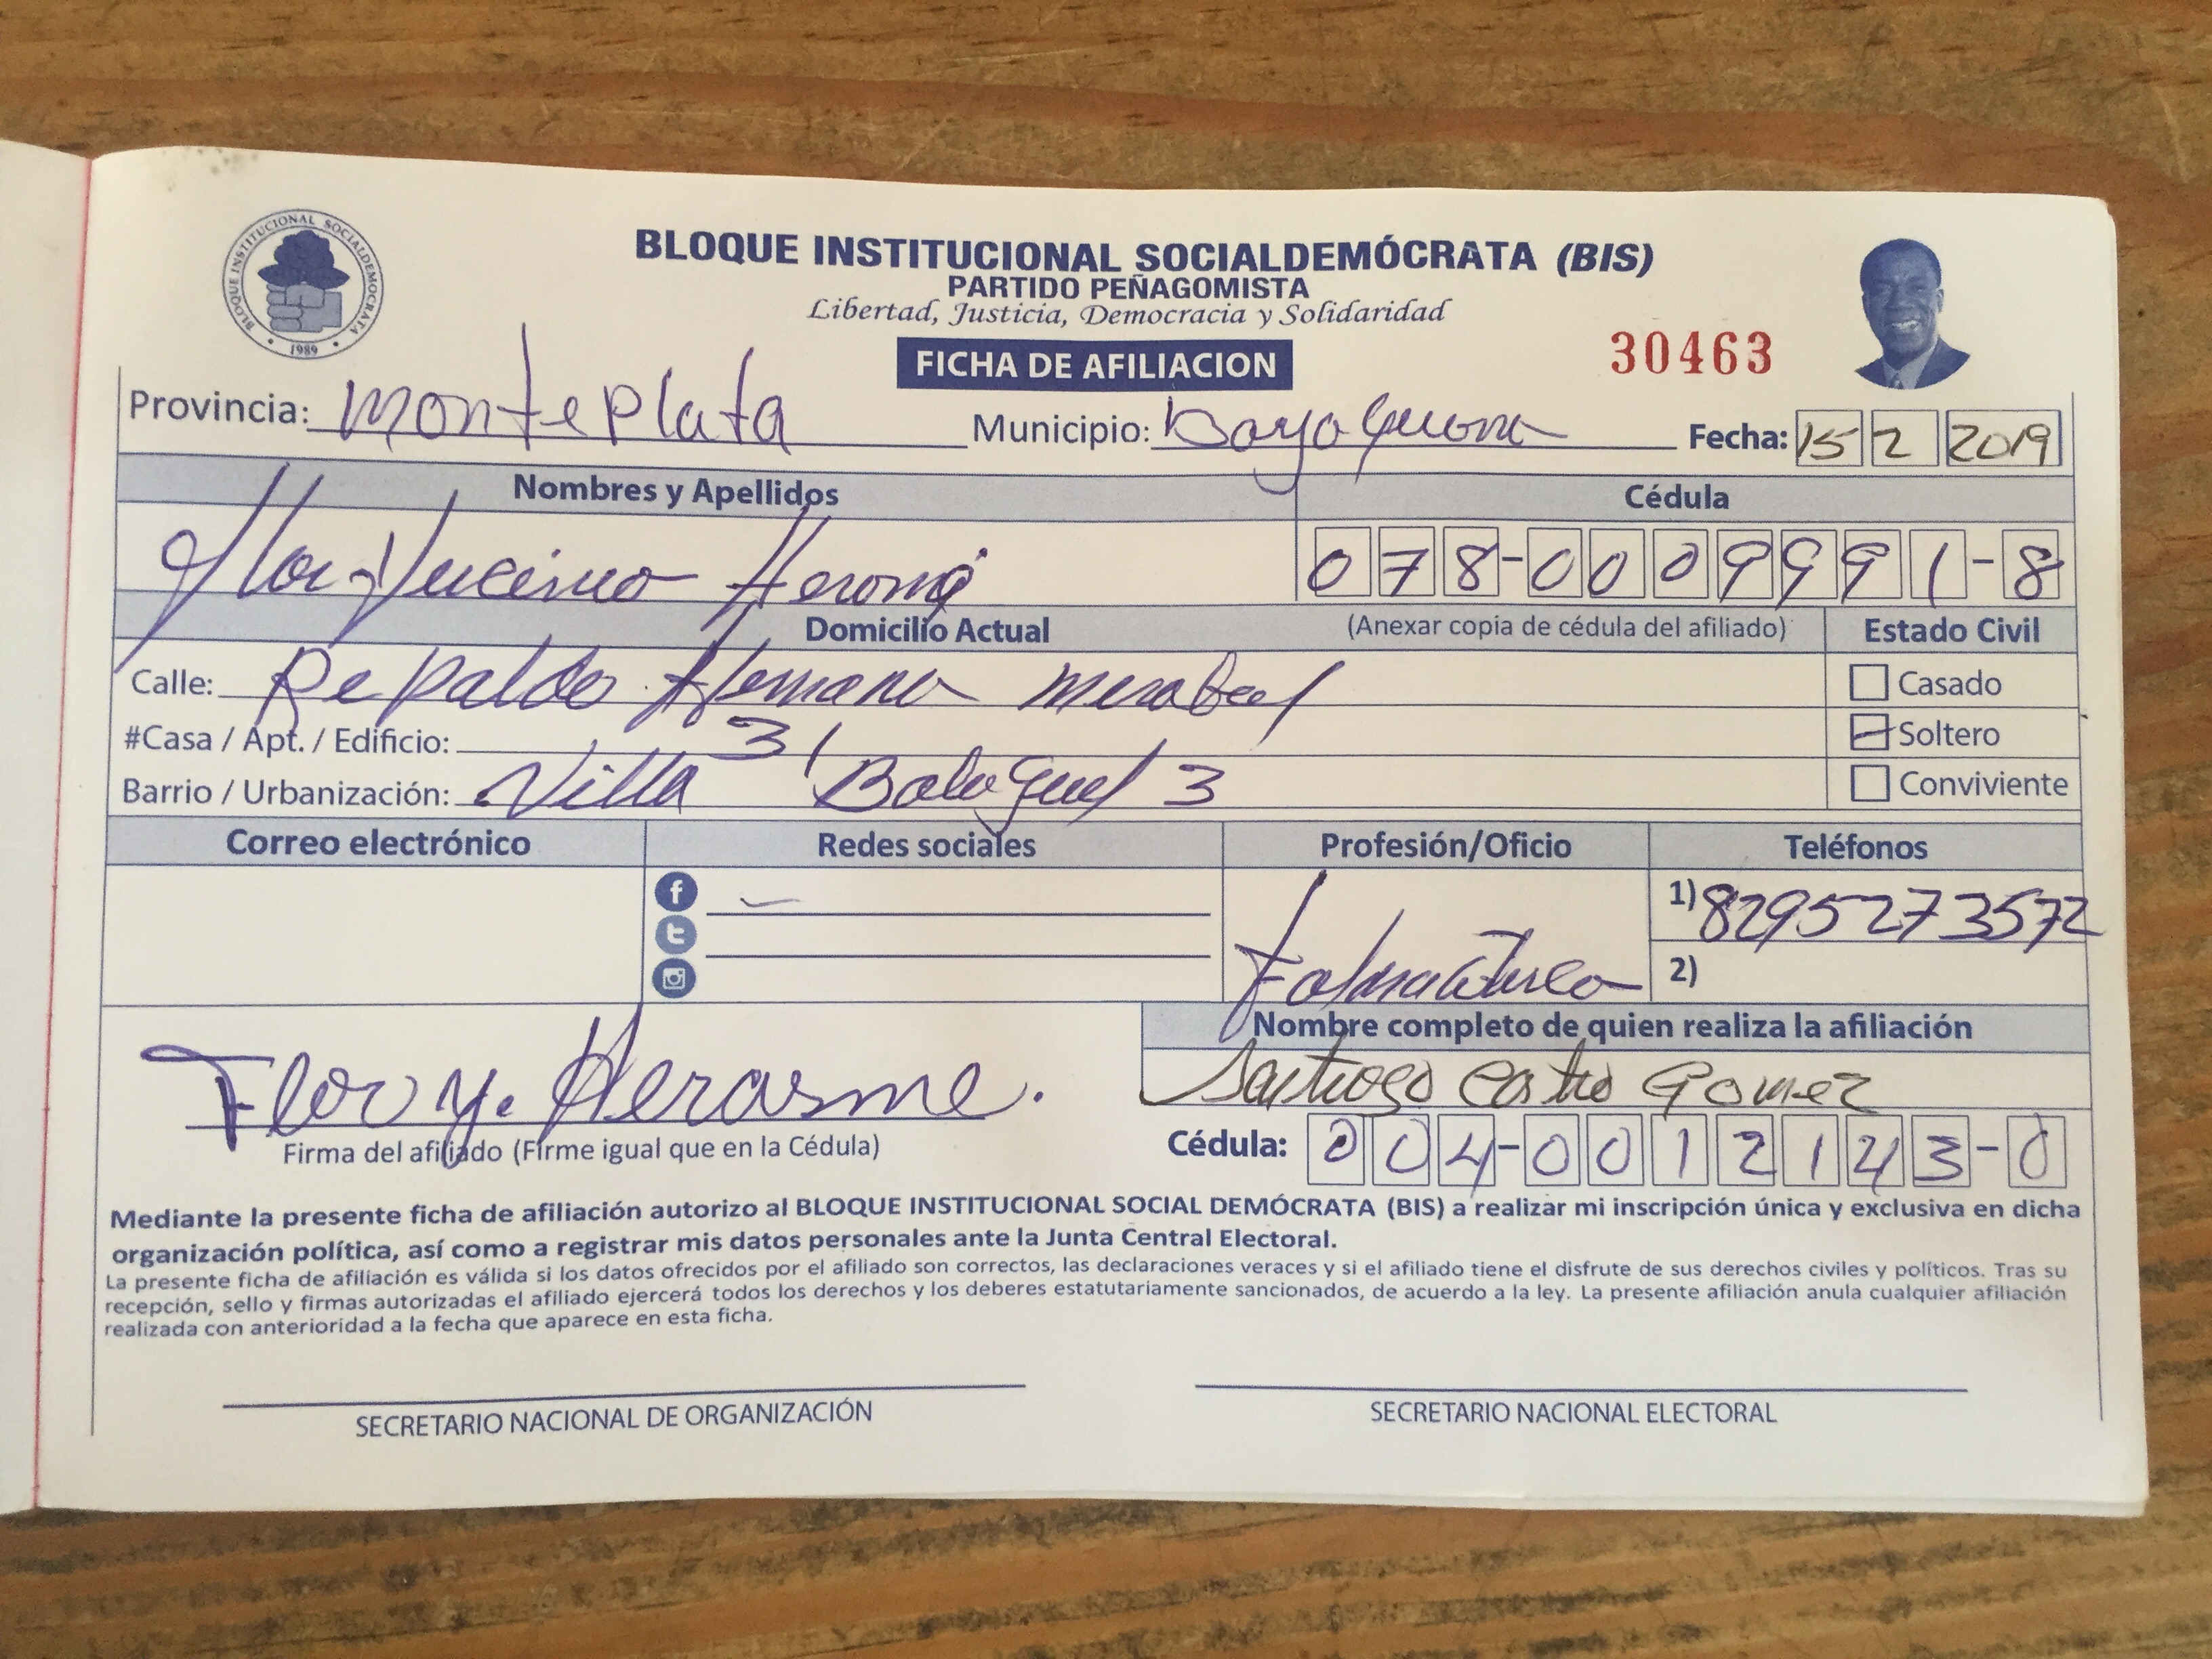 BLOQUE INSTITUCIONAL SOCIALDEMOCRATA
1989
BLOQUE INSTITUCIONAL SOCIALDEMÓCRATA (BIS)
PARTIDO PEÑAGOMISTA
Libertad, Justicia, Democracia y Solidaridad
FICHA DE AFILIACION
30463
Provincia: Monte Plata Municipio: Fecha: 15 2 2019
Nombres y Apellidos Cédula
Flor 078-0009991-8
Domicilio Actual (Anexar copia de cédula del afiliado) Estado Civil
Calle: Casado
#Casa / Apt. / Edificio: 31 Soltero
Barrio / Urbanización: Villa 3 Conviviente
Correo electrónico Redes sociales Profesión/Oficio Teléfonos
1) 8295273572
2)
Nombre completo de quien realiza la afiliación
Santiago Castro Gomez
Flor Y. Herasme.
Firma del afiliado (Firme igual que en la Cédula)
Cédula: 004-0012143-0
Mediante la presente ficha de afiliación autorizo al BLOQUE INSTITUCIONAL SOCIAL DEMÓCRATA (BIS) a realizar mi inscripción única y exclusiva en dicha
organización política, así como a registrar mis datos personales ante la Junta Central Electoral.
La presente ficha de afiliación es válida si los datos ofrecidos por el afiliado son correctos, las declaraciones veraces y si el afiliado tiene el disfrute de sus derechos civiles y políticos. Tras su
recepción, sello y firmas autorizadas el afiliado ejercerá todos los derechos y los deberes estatutariamente sancionados, de acuerdo a la ley. La presente afiliación anula cualquier afiliación
realizada con anterioridad a la fecha que aparece en esta ficha.
SECRETARIO NACIONAL DE ORGANIZACIÓN SECRETARIO NACIONAL ELECTORAL